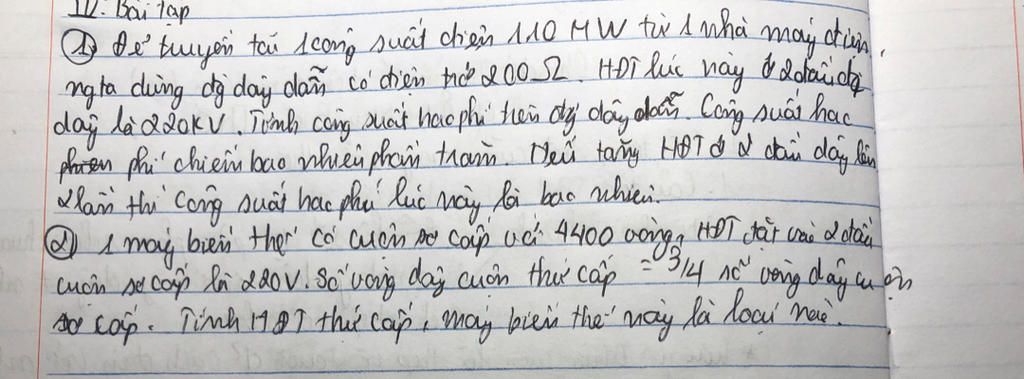 IV. Bài tập
① Để truyền tải 1 công suất điện 110 MW từ 1 nhà máy điện,
ngta dùng đg dây dẫn có điện trở 200Ω. HĐT lúc này ở 2 đầu đg
dây là 220KV. Tính công suất hao phí trên đg dây dẫn. Công suất hao
phí chiếm bao nhiêu phần trăm. Nếu tăng HĐT ở 2 đầu dây lên
2 lần thì công suất hao phí lúc này là bao nhiêu.
② 1 máy biến thế có cuộn sơ cấp với 4400 vòng, HĐT đặt vào 2 đầu
cuộn sơ cấp là 220V. Số vòng dây cuộn thứ cấp = 3/4 số vòng dây cuộn
sơ cấp. Tính HĐT thứ cấp, máy biến thế này là loại nào.